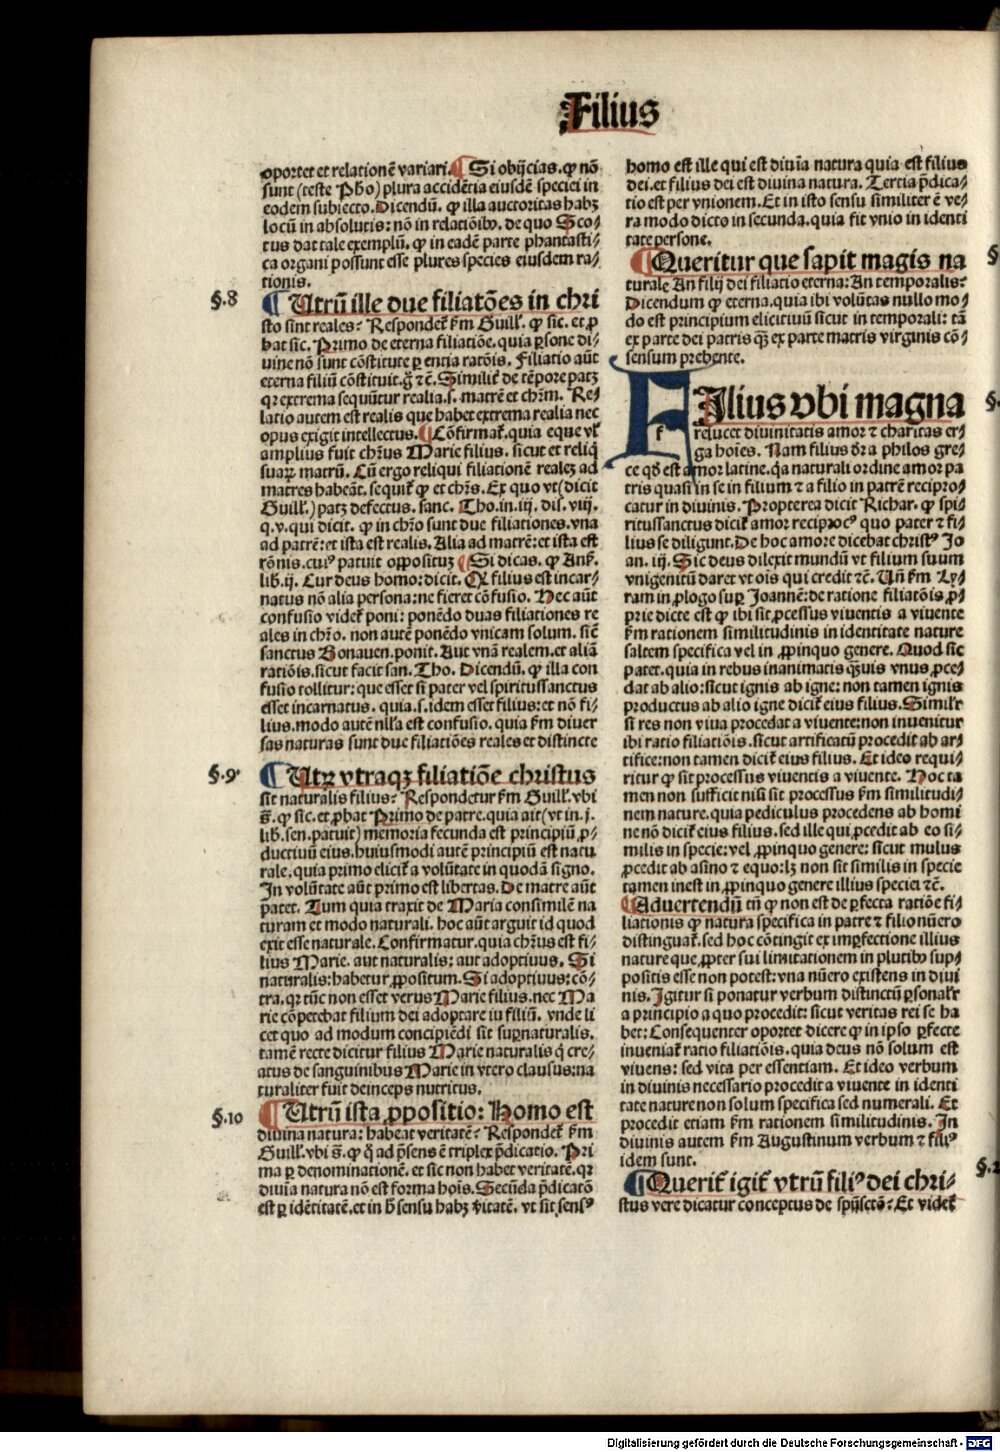 Filius
oportet et relationē variari. ¶ Si obijcias. ꝙ nō
sunt (teste Pho) plura accidētia eiusdē speciei in
eodem subiecto. Dicendū. ꝙ illa auctoritas habꝫ
locū in absolutis: nō in relatiōibꝰ. de quo Sco⸗
tus dat tale exemplū. ꝙ in eadē parte phantasti⸗
ca organi possunt esse plures species eiusdem ra⸗
tionis.
§.8
¶ Utrū ille due filiatōes in chri
sto sint reales? Respondet̄ ẜm Guill'. ꝙ sic. et ꝓ
bat sic. Primo de eterna filiatiōe. quia ꝑsone di⸗
uine nō sunt cōstitute ꝑ entia ratōis. Filiatio aūt
eterna filiū cōstituit. g̊ ⁊ c̄. Similit̄ de tēpore patꝫ
qꝛ extrema sequūtur realia. s. matrē et chꝛm. Re⸗
latio autem est realis que habet extrema realia nec
opus exigit intellectus. ¶ Cōfirmat̄. quia eque vl'
amplius fuit chꝛus Marie filius. sicut et reliq̄
suaꝝ matrū. Cū ergo reliqui filiationē realeꝫ ad
matres habeāt. sequit̄ ꝙ et chꝛs. Ex quo vt (dicit
Guill'.) patꝫ defectus. sanc. Tho. in. iij. dis. viij.
q. v. qui dicit. ꝙ in chꝛo sunt due filiationes. vna
ad patrē: et ista est realis. Alia ad matrē: et ista est
rōnis. cuiꝰ patuit oppositū ¶ Si dicas. ꝙ Ans̄.
lib. ij. Cur deus homo: dicit. Ꝙ filius est incar⸗
natus nō alia persona: ne fieret cōfusio. Hec aūt
confusio videt̄ poni: ponēdo duas filiationes re
ales in chꝛo. non autē ponēdo vnicam solum. sic̄
sanctus Bonauen. ponit. Aut vnā realem. et aliā
ratiōis. sicut facit san. Tho. Dicendū. ꝙ illa con
fusio tollitur: que esset si pater vel spiritussanctus
esset incarnatus. quia. s. idem esset filius: et nō fi⸗
lius. modo autē nll'a est confusio. quia ẜm diuer
sas naturas sunt due filiatiōes reales et distincte
§.9.
¶ Utꝝ vtraqꝫ filiatiōe christus
sit naturalis filius? Respondetur ẜm Guill'. vbi
s̄. ꝙ sic. et ꝓbat Primo de patre. quia ait (vt in. j.
lib. sen. patuit) memoria fecunda est principiū ꝓ⸗
ductiuū eius. huiusmodi autē principiū est natu
rale. quia primo elicit̄ a volūtate in quodā signo.
In volūtate aūt primo est libertas. De matre aūt
patet. Tum quia traxit de Maria consimilē na
turam et modo naturali. hoc aūt arguit id quod
exit esse naturale. Confirmatur. quia chꝛus est fi⸗
lius Marie. aut naturalis: aut adoptiuus. Si
naturalis: habetur ꝓpositum. Si adoptiuus: cō⸗
tra. qꝛ tūc non esset verus Marie filius. nec Ma
rie cōpetebat filium dei adoptare iu filiū. vnde li
cet quo ad modum concipiēdi sit suꝑnaturalis.
tamē recte dicitur filius Marie naturalis q̄ cre⸗
atus de sanguinibus Marie in vtero clausus: na
turaliter fuit deinceps nutritus.
§.10
¶ Utrū ista ꝓpositio: Homo est
diuina natura: habeat veritatē? Respondet̄ ẜm
Guill'. vbi s̄. ꝙ q̄ ad p̄sens ē triplex p̄dicatio. Pri
ma ꝑ denominationē. et sic non habet veritatē. qꝛ
diuīa natura nō est forma hoīs. Secūda p̄dicatō
est ꝑ idētitatē. et in h̄ sensu habꝫ v̄itatē. vt sit sensꝰ
homo est ille qui est diuīa natura quia est filius
dei. et filius dei est diuina natura. Tertia p̄dica⸗
tio est per vnionem. Et in isto sensu similiter ē ve⸗
ra modo dicto in secunda. quia fit vnio in identi
tate persone.
§
¶ Queritur que sapit magis na
turale An filij dei filiatio eterna: An temporalis?
Dicendum ꝙ eterna. quia ibi volūtas nullo mo⸗
do est principium elicitiuū sicut in temporali: tā
ex parte dei patris qꝫ ex parte matris virginis cō⸗
sensum prebente.
§.
FIlius vbi magna
relucet diuinitatis amor ⁊ charitas er⸗
ga hoīes. Nam filius dr̄ a philos gre⸗
ce qd̄ est amor latine. q̄a naturali ordine amor pa
tris quasi in se in filium ⁊ a filio in patrē recipro⸗
catur in diuinis. Propterea dicit Richar. ꝙ spi⸗
ritussanctus dicit̄ amor recipꝛocꝰ quo pater ⁊ fi⸗
lius se diligunt. De hoc amore dicebat christꝰ Jo
an. iij. Sic deus dilexit mundū vt filium suum
vnigenitū daret vt oīs qui credit ⁊c̄. Un̄ ẜm Ly⸗
ram in ꝓlogo suꝑ Joannē: de ratione filiatōis ꝓ⸗
prie dicte est ꝙ ibi sit ꝓcessus viuentis a viuente
ẜm rationem similitudinis in identitate nature
saltem specifica vel in ꝓpinquo genere. Quod sic
patet. quia in rebus inanimatis qꝫuis vnus ꝓce⸗
dat ab alio: sicut ignis ab igne: non tamen ignis
productus ab alio igne dicit̄ eius filius. Simil'r
si res non viua procedat a viuente: non inuenitur
ibi ratio filiatiōis. sicut artificatū procedit ab ar⸗
tifice: non tamen dicit̄ eius filius. Et ideo requi⸗
ritur ꝙ sit processus viuentis a viuente. Hoc ta
men non sufficit nisi sit processus ẜm similitudi⸗
nem nature. quia pediculus procedens ab homi
ne nō dicit̄ eius filius. sed ille qui ꝓcedit ab eo si⸗
milis in specie: vel ꝓpinquo genere: sicut mulus
ꝓcedit ab asino ⁊ equo: lꝫ non sit similis in specie
tamen inest in ꝓpinquo genere illius speciei ⁊c̄.
¶ Aduertendū tn̄ ꝙ non est de ꝑfecta ratiōe fi⸗
liationis ꝙ natura specifica in patre ⁊ filio nūero
distinguat̄. sed hoc cōtingit ex imꝑfectione illius
nature que ꝓpter sui limitationem in pluribꝰ sup⸗
positis esse non potest: vna nūero existens in diui
nis. Igitur si ponatur verbum distinctū ꝑsonal'r
a principio a quo procedit: sicut veritas rei se ha
bet: Consequenter oportet dicere ꝙ in ipso ꝑfecte
inueniat̄ ratio filiatiōis. quia deus nō solum est
viuens: sed vita per essentiam. Et ideo verbum
in diuinis necessario procedit a viuente in identi
tate nature non solum specifica sed numerali. Et
procedit etiam ẜm rationem similitudinis. In
diuinis autem ẜm Augustinum verbum ⁊ filiꝰ
idem sunt.
§.2
¶ Querit̄ igit̄ vtrū filiꝰ dei chri⸗
stus vere dicatur conceptus de spūsctō? Et videt̄
Digitalisierung gefördert durch die Deutsche Forschungsgemeinschaft - DFG